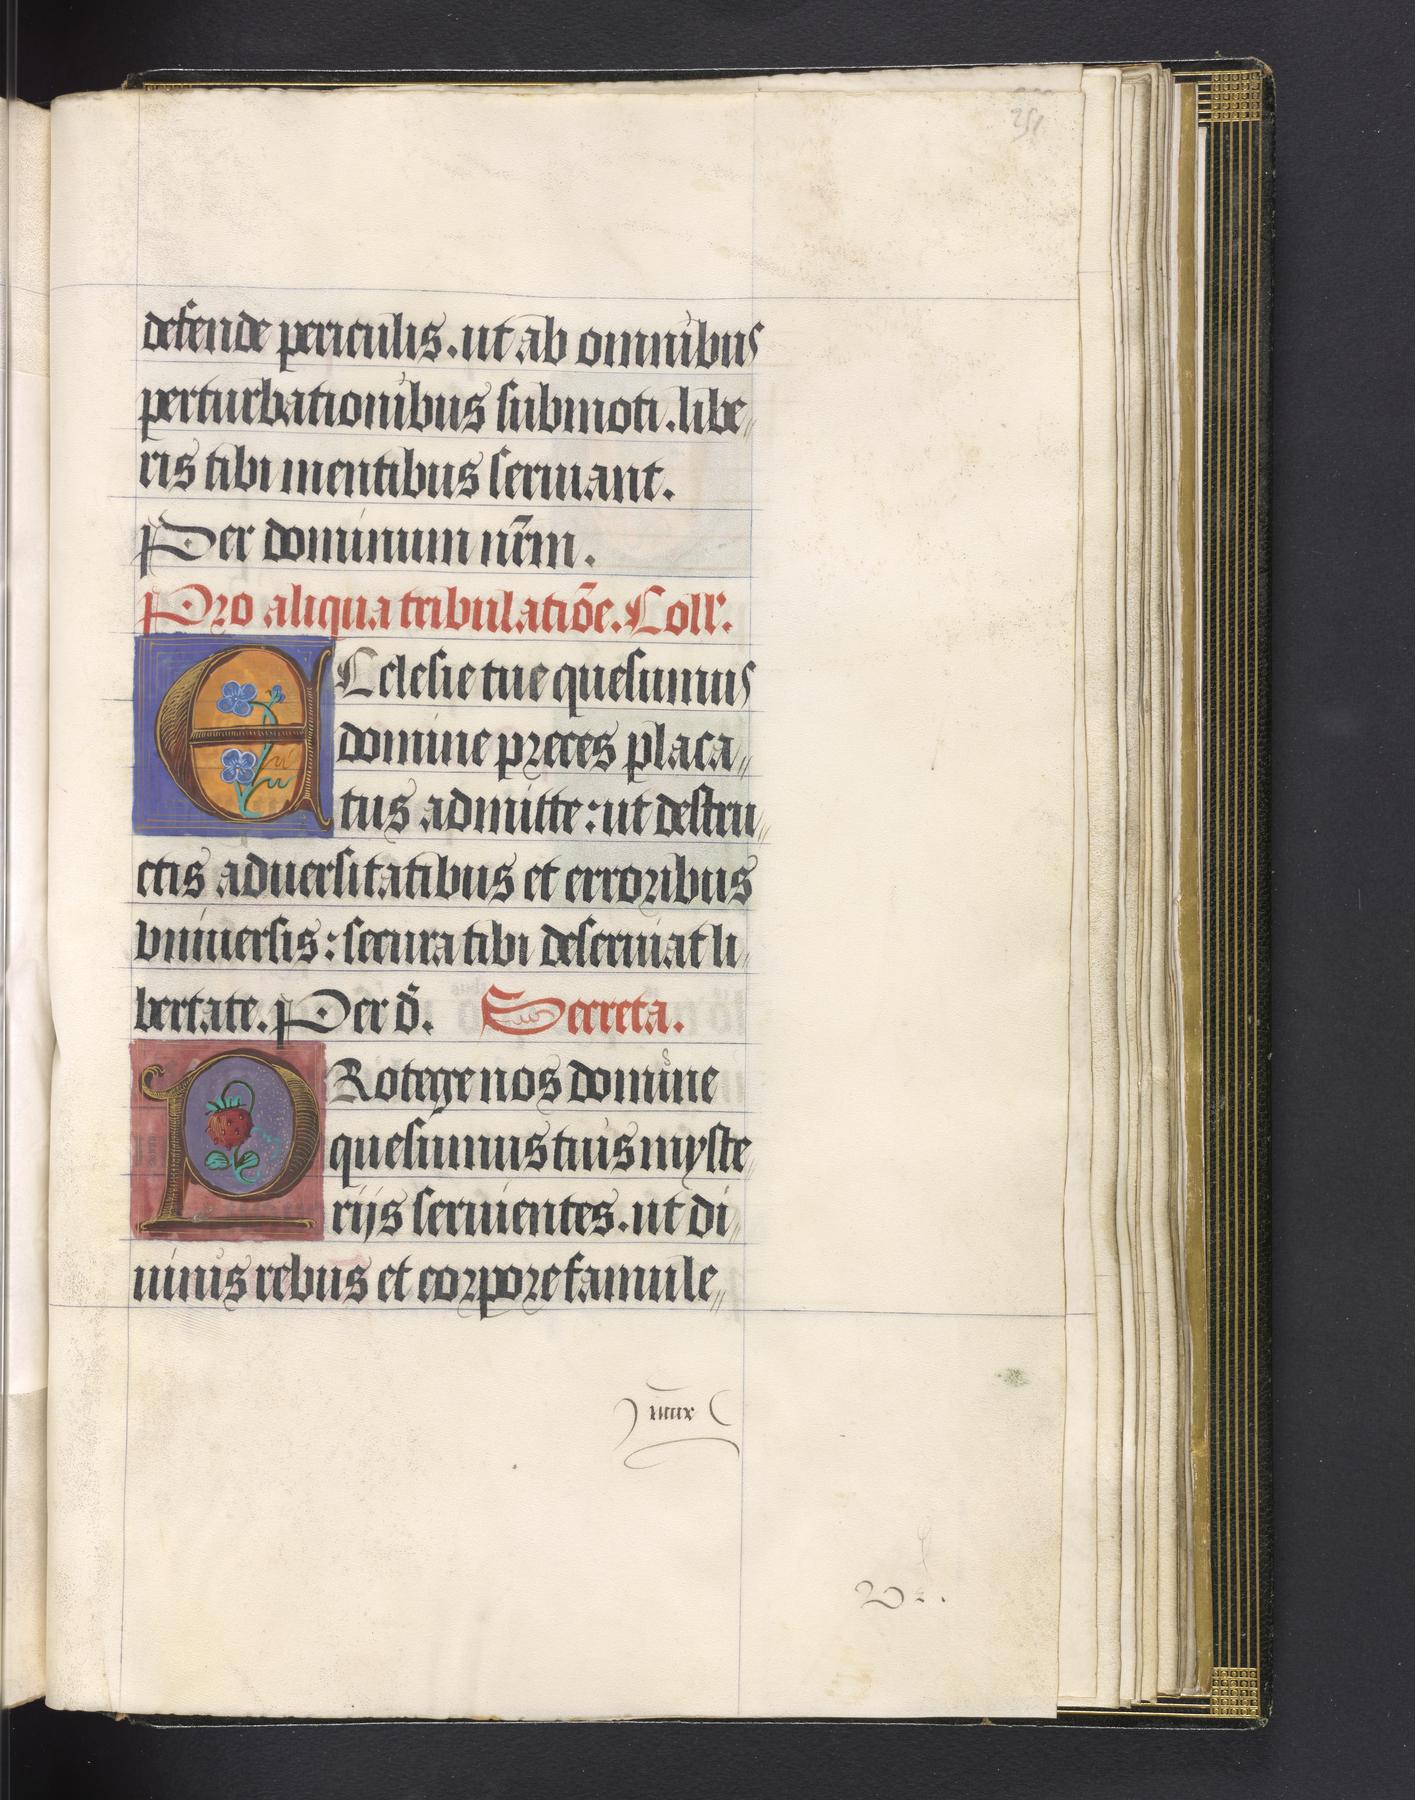 251
defende periculis. ut ab omnibus
perturbationibus submoti. libe„
ris tibi mentibus seruiant.
Per dominum nr̄m.
Pro aliqua tribulatiōe. Coll'.
ECclesie tue quesumus
domine preces placa„
tus admitte: ut destru„
ctis aduersitatibus et erroribus
vniuersis: secura tibi deseruiat li„
bertate. Per d̄. Secreta.
PRotege nos domine
quesumus tuis myste„
rijs seruientes. ut di„
uinis rebus et corpore famule„